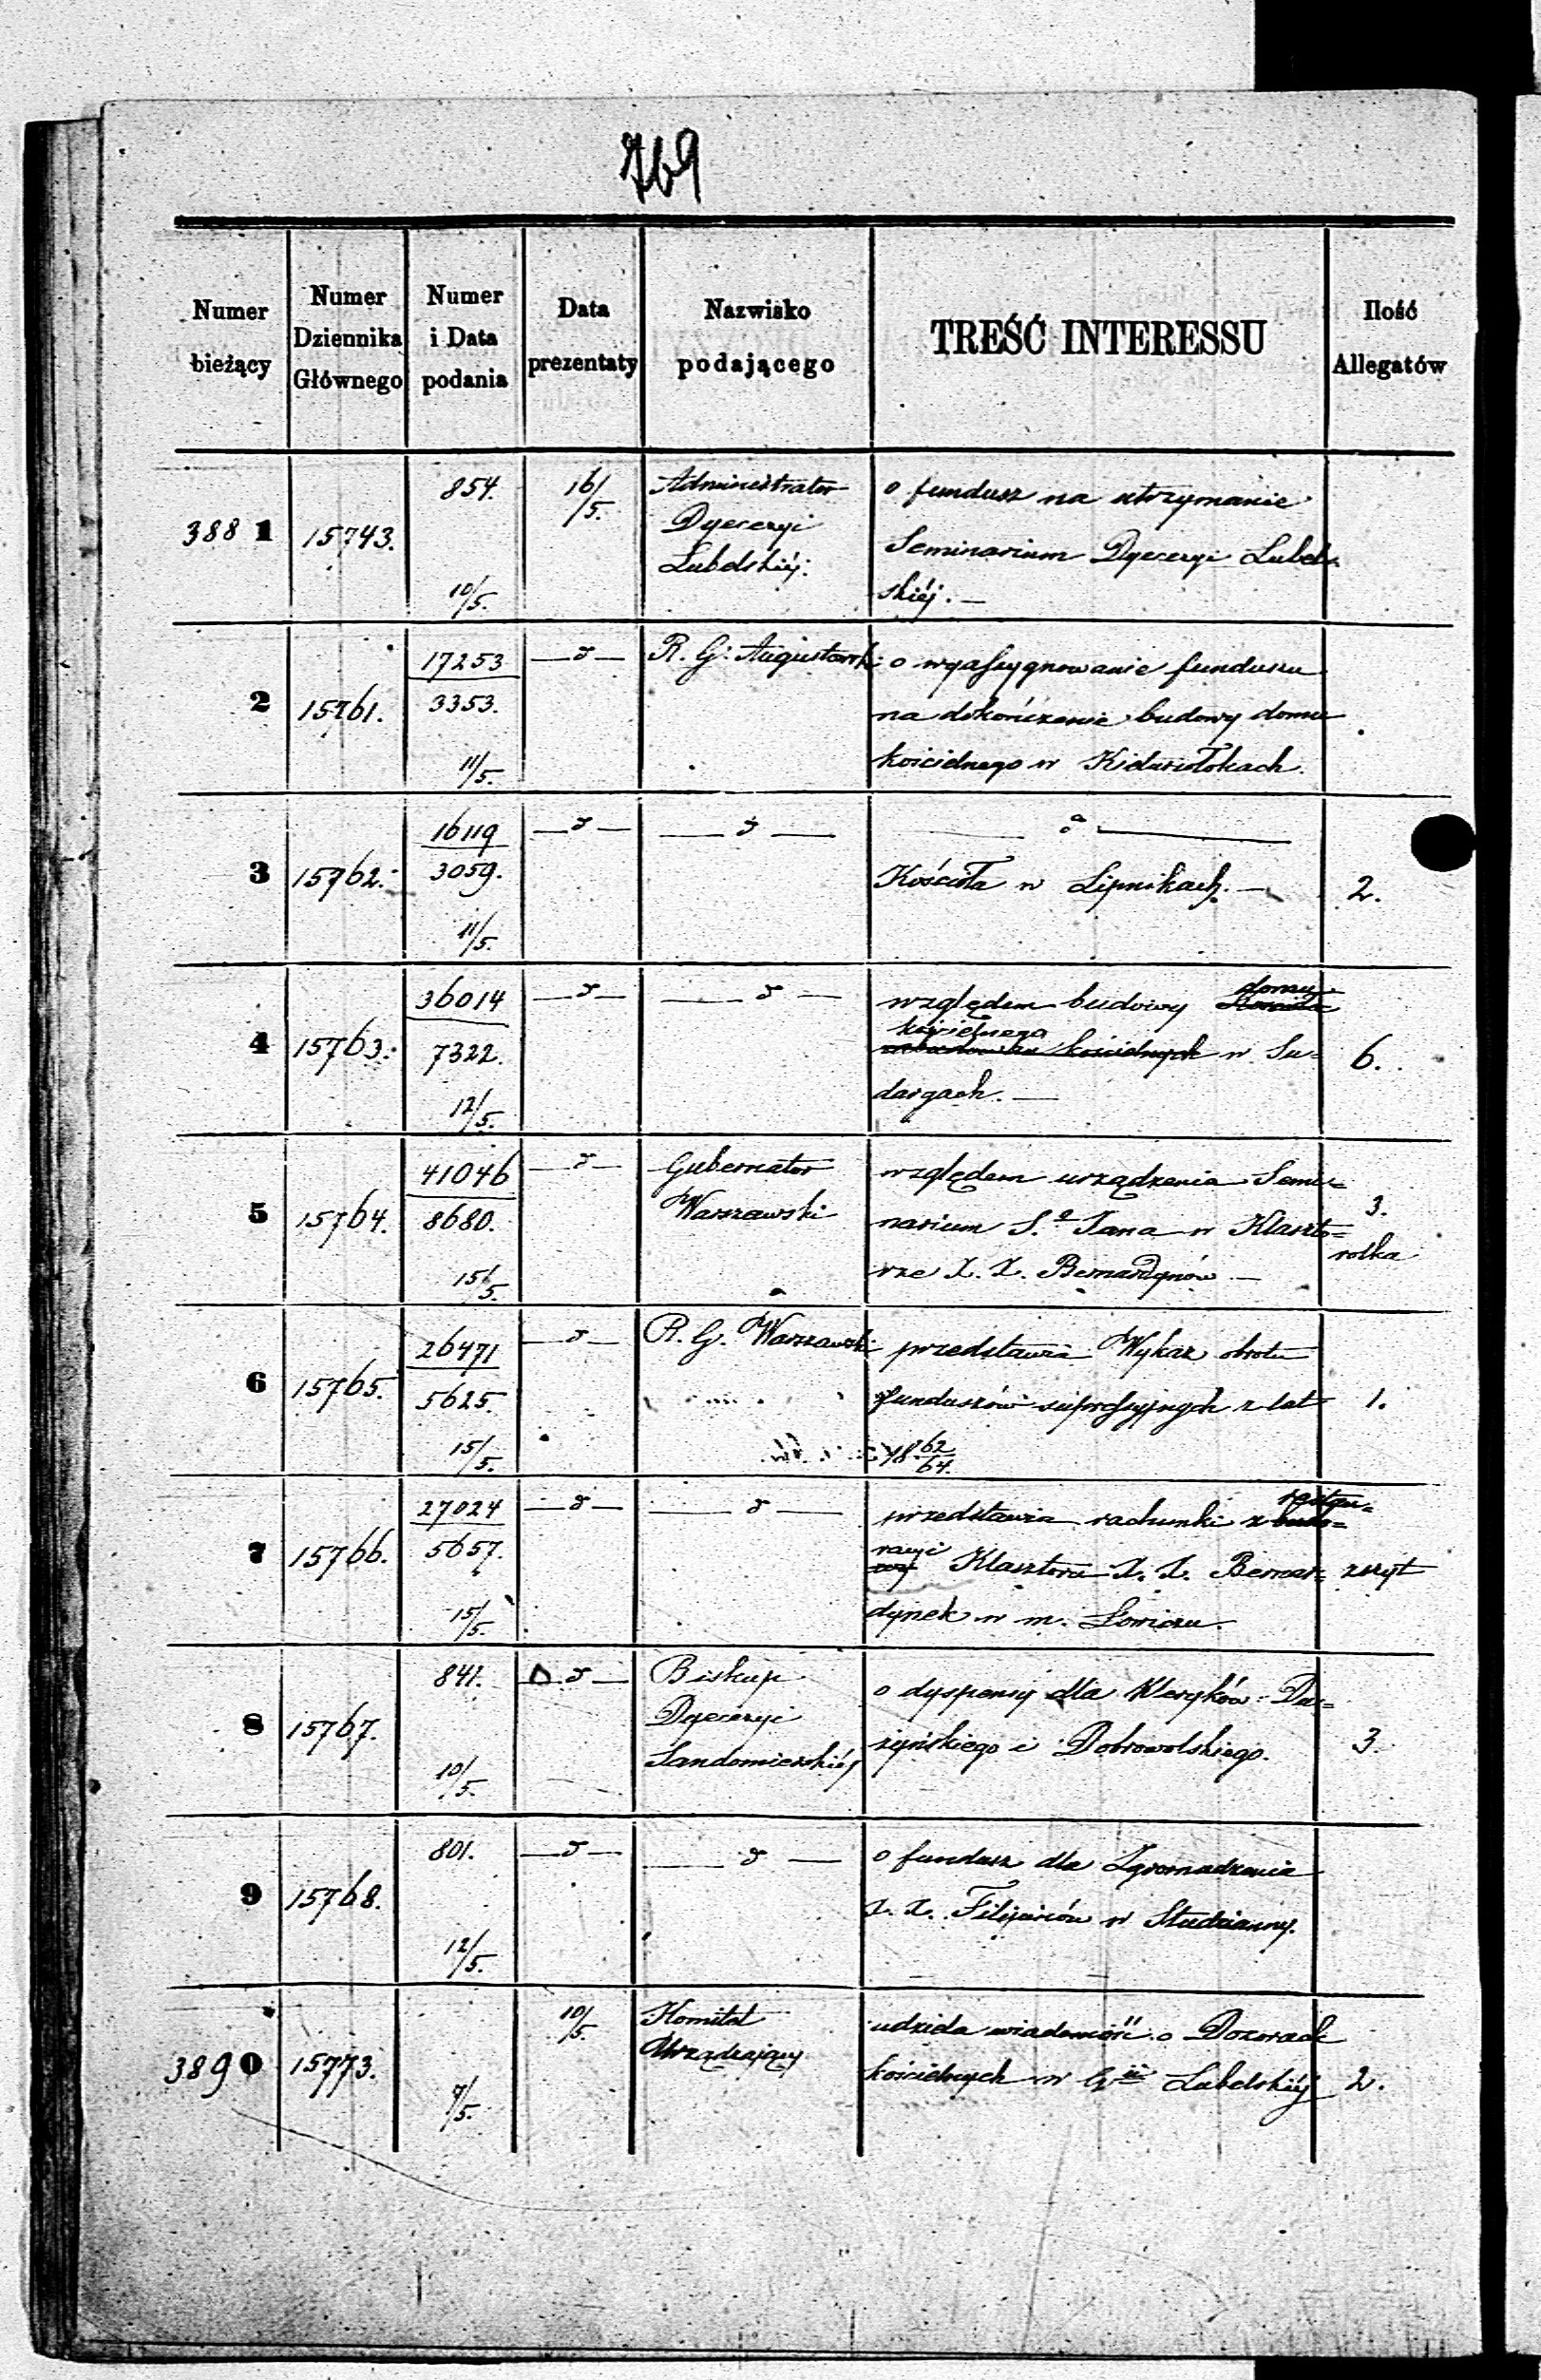 769
Numer bieżący
Numer Dziennika Głównego
Numer i Data podania
Data prezentaty
Nazwisko podającego
TREŚĆ INTERESSU
Ilość Allegatów
3881 15743. 854. 10/5. 16/5. Administrator Dyecezyi Lubelskiéj.
o fundusz na utrzymanie
Seminarium Dyecezyi Lubel-
skiéj. —
2 15761. 17253 3353. 11/5. —d— R. G. Augustowski
o wyassygnowanie funduszu
na dokończenie budowy domu
kościelnego w
3 15762. 16119 3059. 11/5. —d— —d— —d—
Kościoła w Lipnikach. — 2.
4 15763. 36014 7322. 12/5. —d— —d—
względem budowy domu Kościoła
kościelnego kościelnych w Su= 6.
dargach. —
5 15764. 41046 8680. 15/5. —d— Gubernator Warszawski
względem urządzenia Semi=
narium S.o Jana w Klaszto= 3. rolka
rze X. X. Bernardynów —
6 15765. 26471 5625. 15/5. —d— R. G. Warszawski
przedstawia Wykaz obrotu
funduszów supressyjnych z lat 1.
18 62/64.
7 15766. 27024 5657. 15/5. —d— —d—
przedstawia rachunki z restau= budo=
racyi wy Klasztoru X. X. Bernar= zszyt
dynek w m. Łowiczu.
8 15767. 841. 10/5. —d— Biskup Dyecezyi Sandomierskiéj
o dyspensy dla Kleryków: Du=
żyńskiego i Dobrowolskiego. 3.
9 15768. 801. 12/5. —d— —d—
o fundusz dla Zgromadzenia
X. X. Filipinów w Studzianny.
3890 15773. 7/5. 10/5. Komitet Urządzający
udziela wiadomość o Dozorach
kościelnych w G ii Lubelskiéj 2.